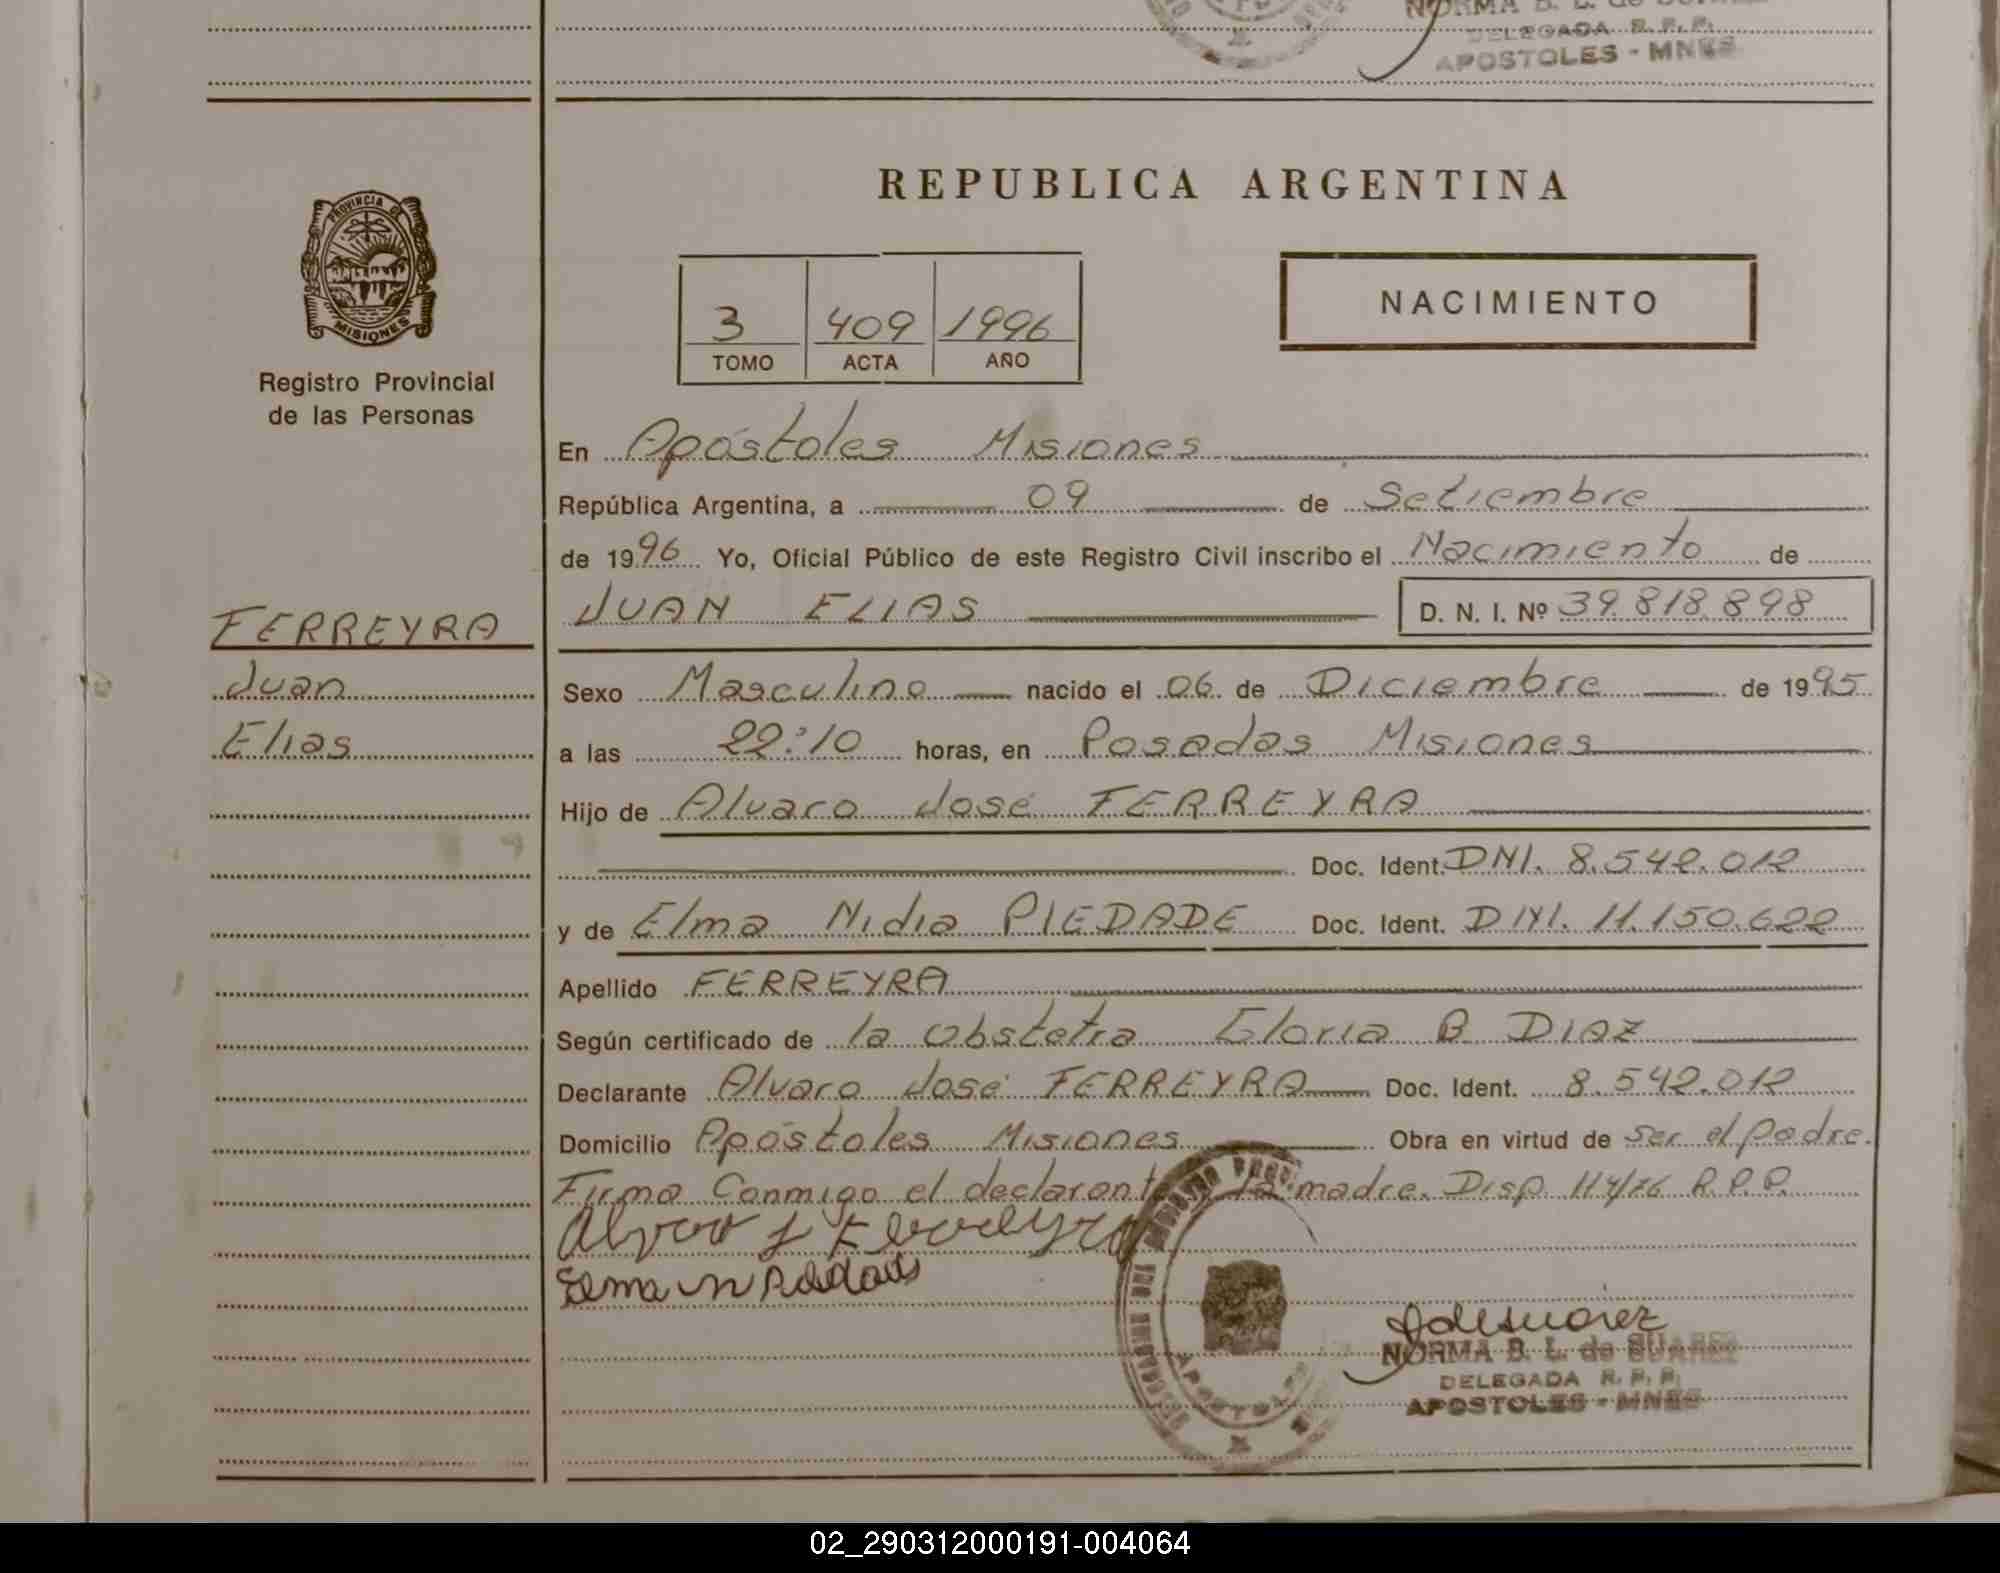 NORMA B. L. de SUAREZ
DELEGADA R. P. P.
APOSTOLES - MNES
PROVINCIA DE
MISIONES
Registro Provincial
de las Personas
REPUBLICA ARGENTINA
3 409 1996
TOMO ACTA AÑO
NACIMIENTO
En Apóstoles Misiones
República Argentina, a 09 de Setiembre
de 1996 Yo, Oficial Público de este Registro Civil inscribo el Nacimiento de
FERREYRA
Juan
Elias
JUAN ELIAS D. N. I. Nº 39.818.898
Sexo Masculino nacido el 06 de Diciembre de 1995
a las 22:10 horas, en Posadas Misiones
Hijo de Alvaro José FERREYRA
Doc. Ident. DNI. 8.542.012
y de Elma Nidia PIEDADE Doc. Ident. DNI. 11.150.622
Apellido FERREYRA
Según certificado de la Obstetra Gloria B. DIAZ
Declarante Alvaro José FERREYRA Doc. Ident. 8.542.012
Domicilio Apóstoles Misiones Obra en virtud de ser el padre.
Firma Conmigo el declarante la madre. Disp. 114/76 R.P.P.
Alvaro J Ferreyra
Elma N Piedade
APOSTOLES
NORMA B. L. de SUAREZ
DELEGADA R. P. P.
APOSTOLES - MNES
02_290312000191-004064